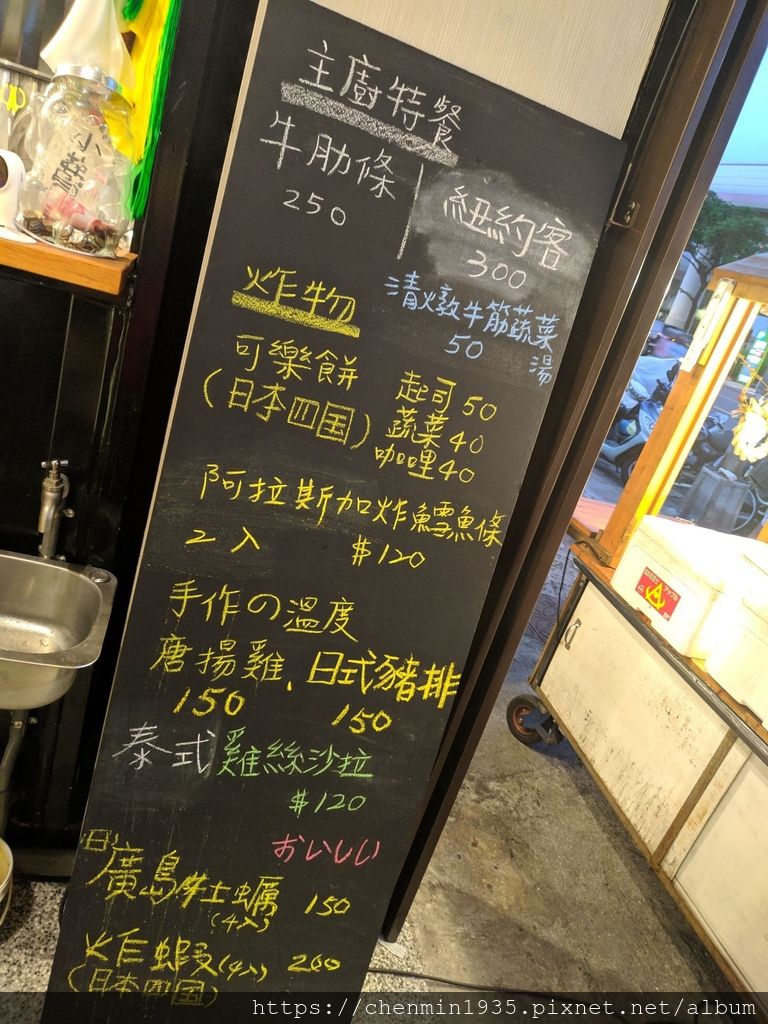 主廚特餐
牛肋條
250
紐約客
300
清燉牛筋蔬菜
湯
50
炸物
可樂餅
(日本四国)
起司50
蔬菜40
咖哩40
阿拉斯加炸鱈魚條
2入 $120
手作の溫度
唐揚雞、日式豬排
150 150
泰式雞絲沙拉
$120
おいしい
(日)
廣島牡蠣 150
(4入)
炸蝦(4入) 200
(日本四国)
https://chenmin1935.pixnet.net/album